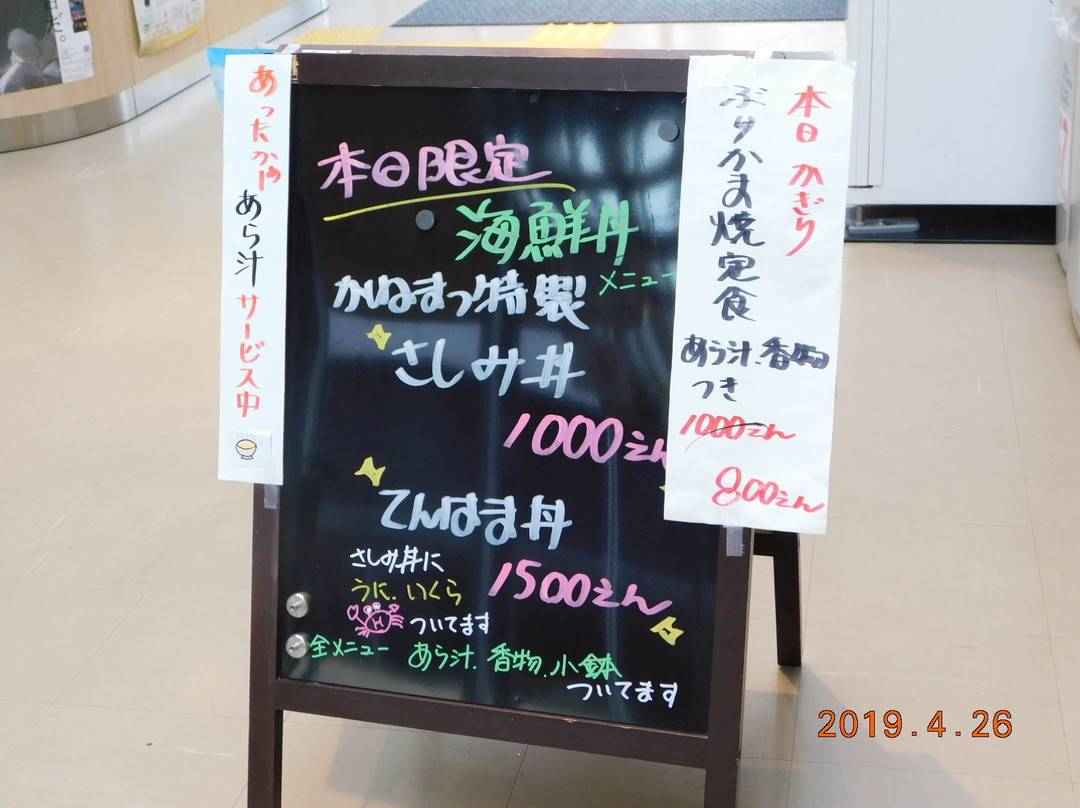 あったかーい
あら汁
サービス中
本日限定
海鮮丼
メニュー
かねまつ特製
さしみ丼
1000えん
てんはま丼
さしみ丼に
うに、いくら
1500えん
ついてます
全メニュー あら汁、香物、小鉢
ついてます
本日 かぎり
ぶりかま焼定食
あら汁、香物
つき
1000えん
800えん
2019.4.26